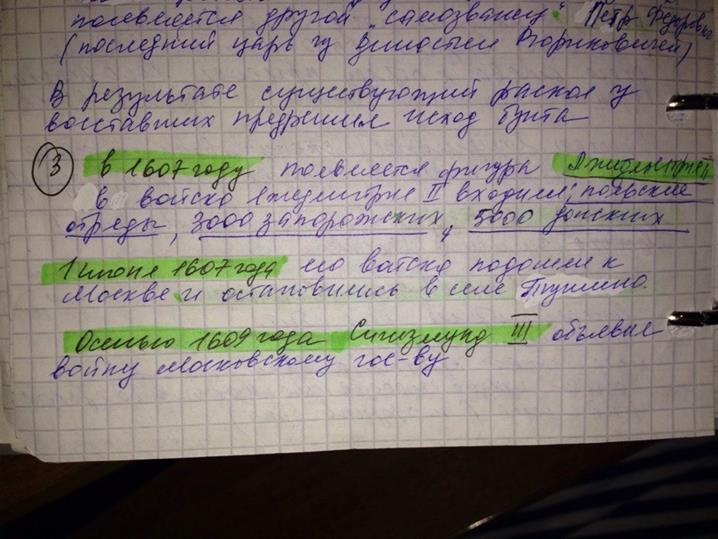 появляется другой "самозванец" Пётр Федорович
(последний царь из династии Рюриковичей)
В результате существующий раскол у
восставших предрешил исход бунта
3 в 1607 году появляется фигура Лжедмитрия II
в войско Лжедмитрия II входили: польские
отряды, 3000 запорожских, 5000 донских
1 июня 1607 года его войско подошли к
Москве и остановились в селе Тушино.
Осенью 1609 года Сигизмунд III объявил
войну Московскому гос-ву